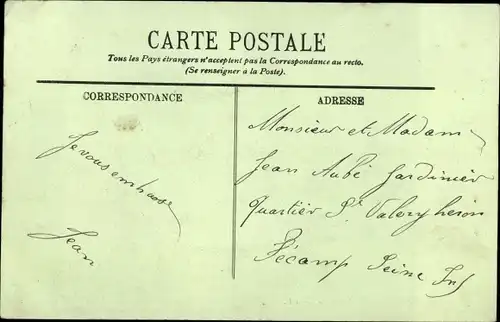 CARTE POSTALE
Tous les Pays étrangers n'acceptent pas la Correspondance au recto.
(Se renseigner à la Poste).
CORRESPONDANCE
Je vous embrasse
Jean
ADRESSE
Monsieur et Madame
Jean Aubé Jardinier
Quartier St Valery
Fécamp Seine Inf